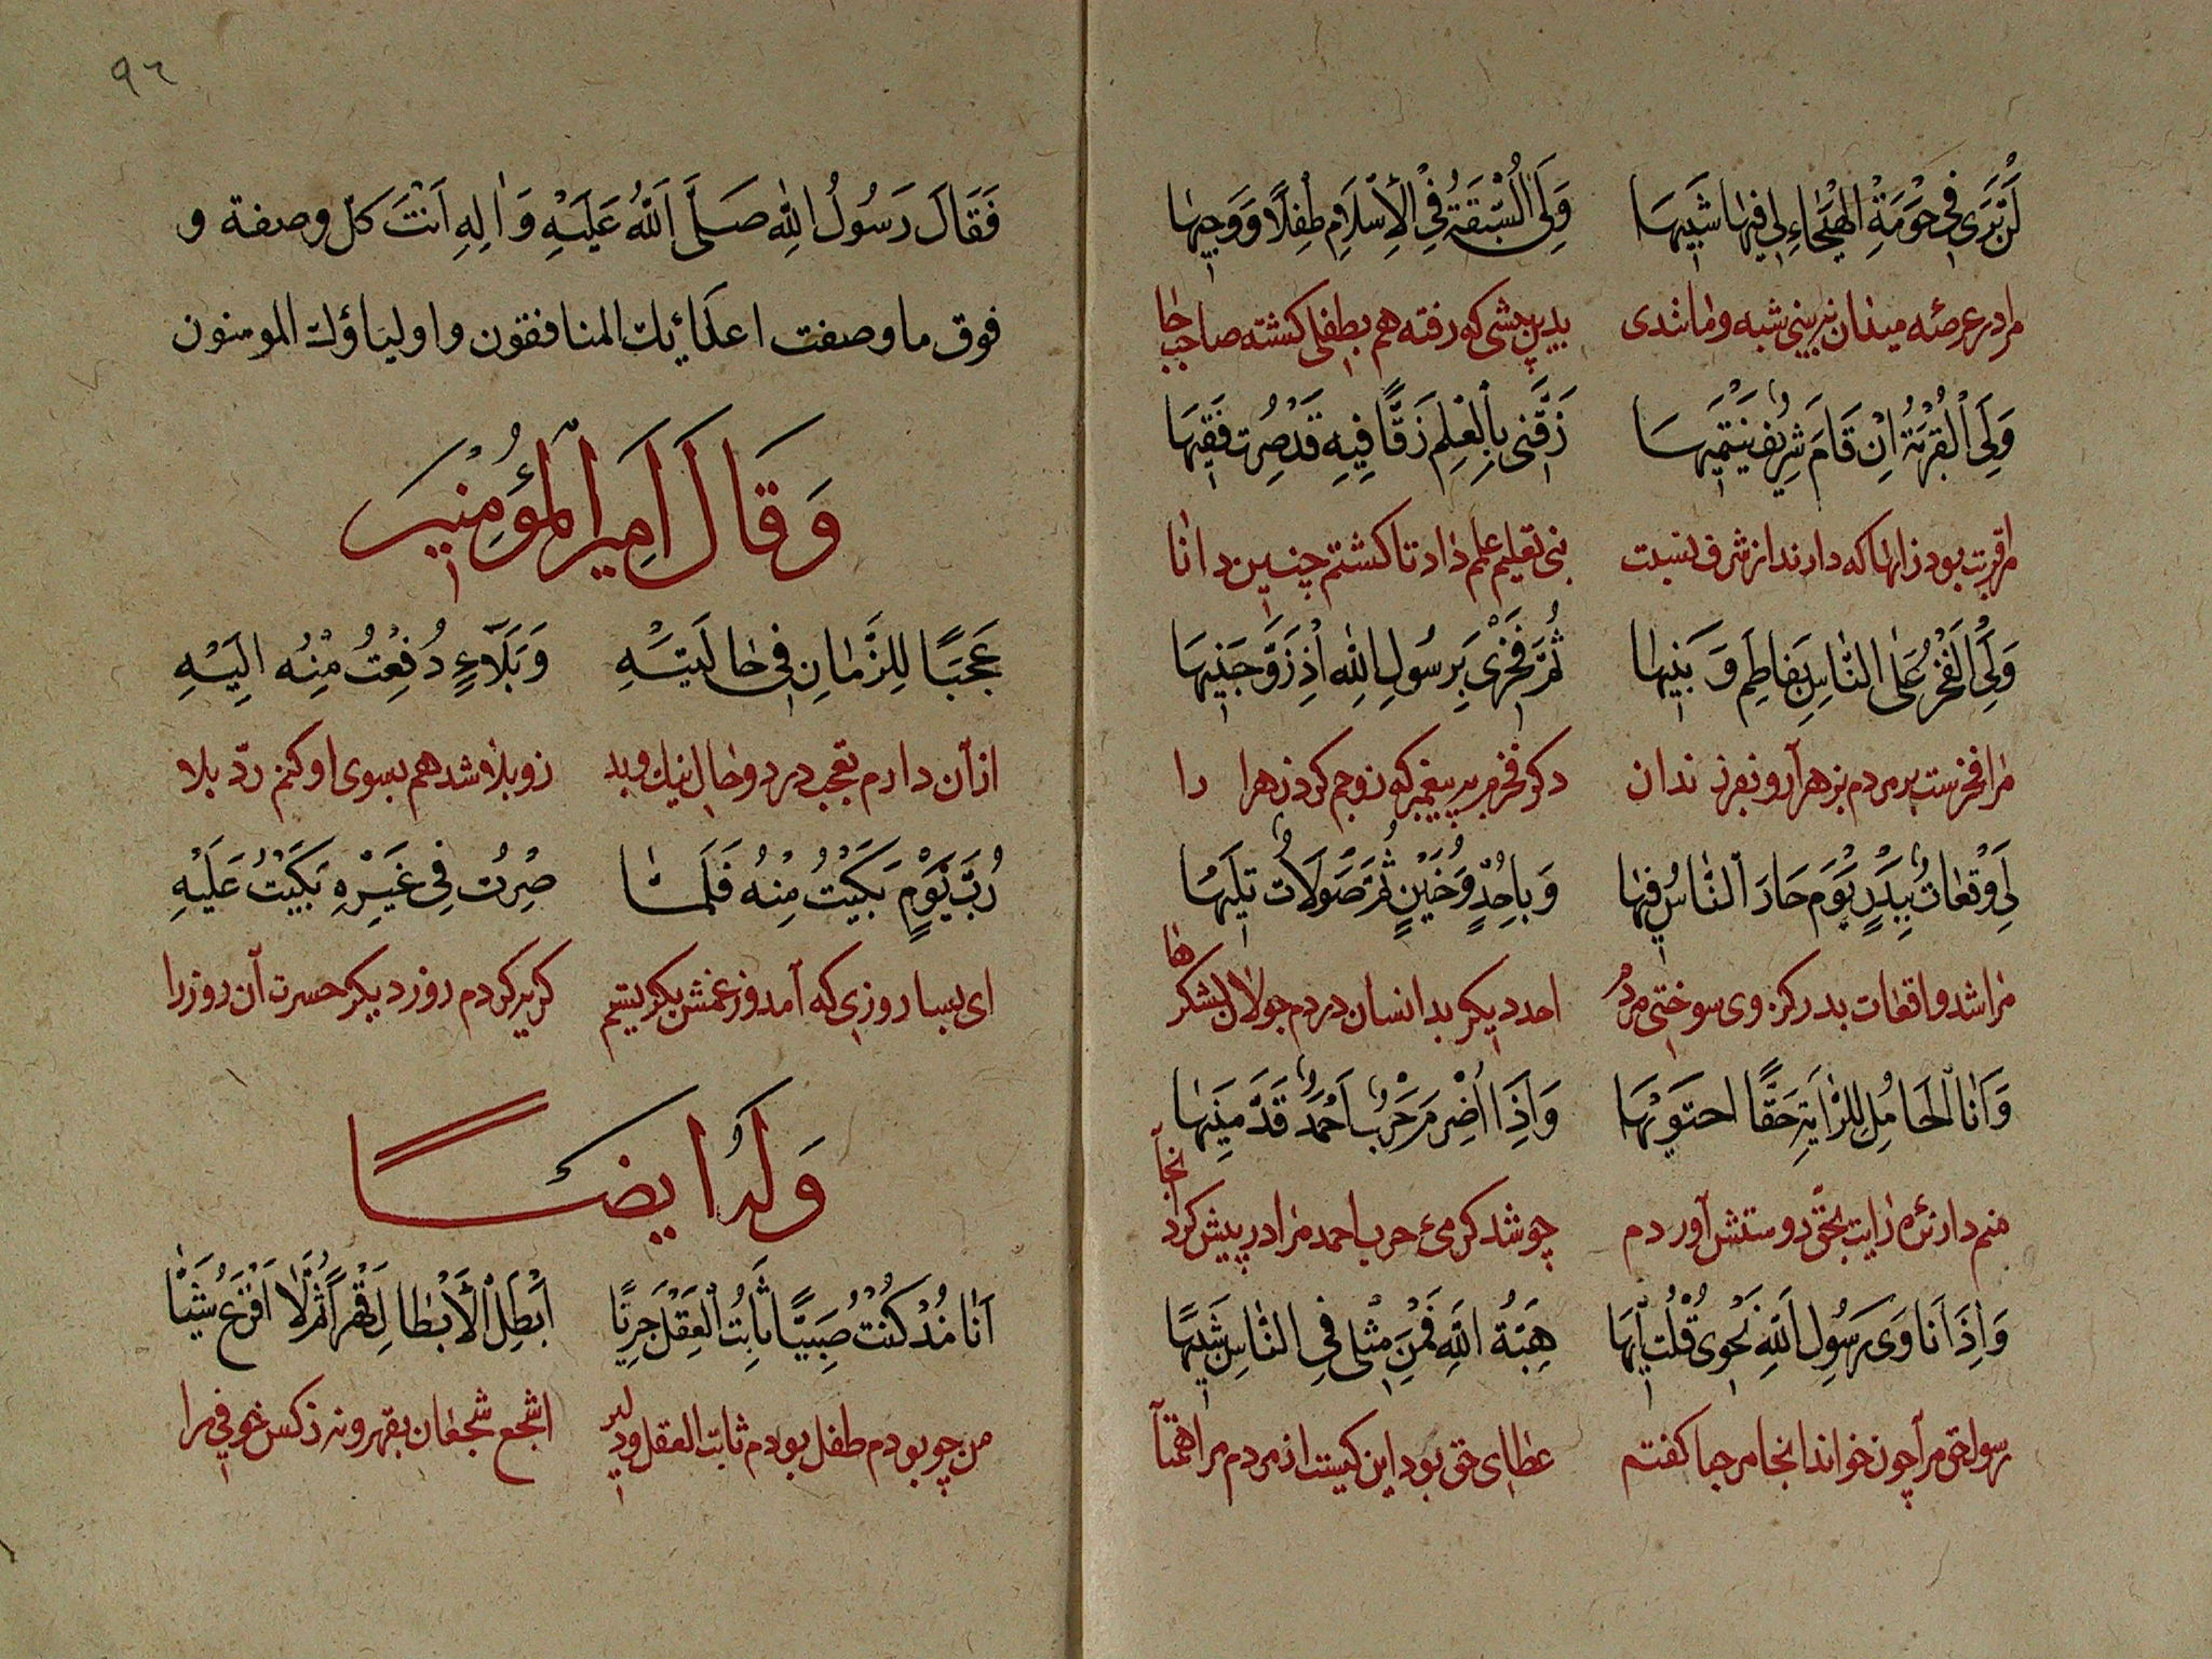 لَنْ تَرٰى فِي حَوْمَةِ الْهَيْجَاءِ لِي فِيهَا شَبِيهَا وَلِيَ السُّبْقَةُ فِي الْاِسْلَامِ طِفْلًا وَوَجِيهَا
مرا در عرصئه میدان نبینی شبه ومانندی بدین پیشی که رفته هم بطفلی کشته صاحب جا
وَلِيَ الْقُرْبَةُ اِنْ قَامَ شَرِيفٌ يَنْتَمِيهَا زَقَّنِي بِالْعِلْمِ زَقًّا فِيهِ قَدْ صِرْتُ فَقِيهَا
مرا قربت بود زانها که دارند از شرف نسبت نبی تعلیم علم داد تا کشتم چنین دانا
وَلِيَ الْفَخْرُ عَلَى النَّاسِ بِفَاطِمَ وَبَنِيهَا ثُمَّ فَخْرِي بِرَسُولِ اللّٰهِ اِذْ زَوَّجَنِيهَا
مرا فخرست بر مردم بزهرا و بفرزندان دکر فخرم به پیغمبر که زوجم کرد زهرا را
لِي وَقَعَاتٌ بِبَدْرٍ يَوْمَ حَارَ النَّاسُ فِيهَا وَبِاُحُدٍ وَحُنَيْنٍ ثُمَّ صَوْلَاتٌ تَلِيهَا
مرا شد واقعات بدر کز وی سوختی مردم احد دیکر بدانسان دردم جولان لشکرها
وَاَنَا الْحَامِلُ لِلرَّايَةِ حَقًّا احتَوِيهَا وَاِذَا اَضْرَمَ حَرْبًا اَحْمَدٌ قَدَّمَنِيهَا
منم دارنئه رایت بحق دوستش آوردم چو شد کرمیء حرب احمد مرا در پیش کرد انجا
وَاِذَا نَادٰى رَسُولُ اللّٰهِ نَحْوِي قُلْتُ اِيهَا هِبَةُ اللّٰهِ فَمَنْ مِثْلِي فِي النَّاسِ شَبِيهًا
رسول حق مرا چون خواند انجا مرحبا کفتم عطای حق بود این کیست از مردم مرا همتا
٩٦
فَقَالَ رَسُولُ اللّٰهِ صَلَّى اللّٰهُ عَلَيْهِ وَاٰلِهِ اَنْتَ كلّ وصفة و
فوق ما وصفت اعدائك المنافقون واولياؤك المومنون
وَقَالَ اَمِيرُ الْمُؤْمِنِينَ
عَجَبًا لِلزَّمَانِ فِي حَالَتَيْهِ وَبَلَاءٍ دُفِعْتُ مِنْهُ اِلَيْهِ
از آن دارم تعجب در دو حال نیك وبد زو بلا شد هم بسوی او کنم ردّ بلا
رُبَّ يَوْمٍ بَكَيْتُ مِنْهُ فَلَمَّا صِرْتُ فِي غَيْرِهِ بَكَيْتُ عَلَيْهِ
ای بسا روزی که آمد وز غمش بکریستم کریه کردم روز دیکر حسرت آن روز را
وَلَهُ اَيضًا
اَنَا مُذْ كُنْتُ صَبِيًّا ثَابِتُ الْعَقْلِ جَرِيًّا اُبْطِلُ الْاَبْطَالَ قَهْرًا ثُمَّ لَا اَفْزَعُ شَيْئًا
من چو بودم طفل بودم ثابت العقل ودلیر اشجع شجعان بقهر ونه زکس خوفی مرا